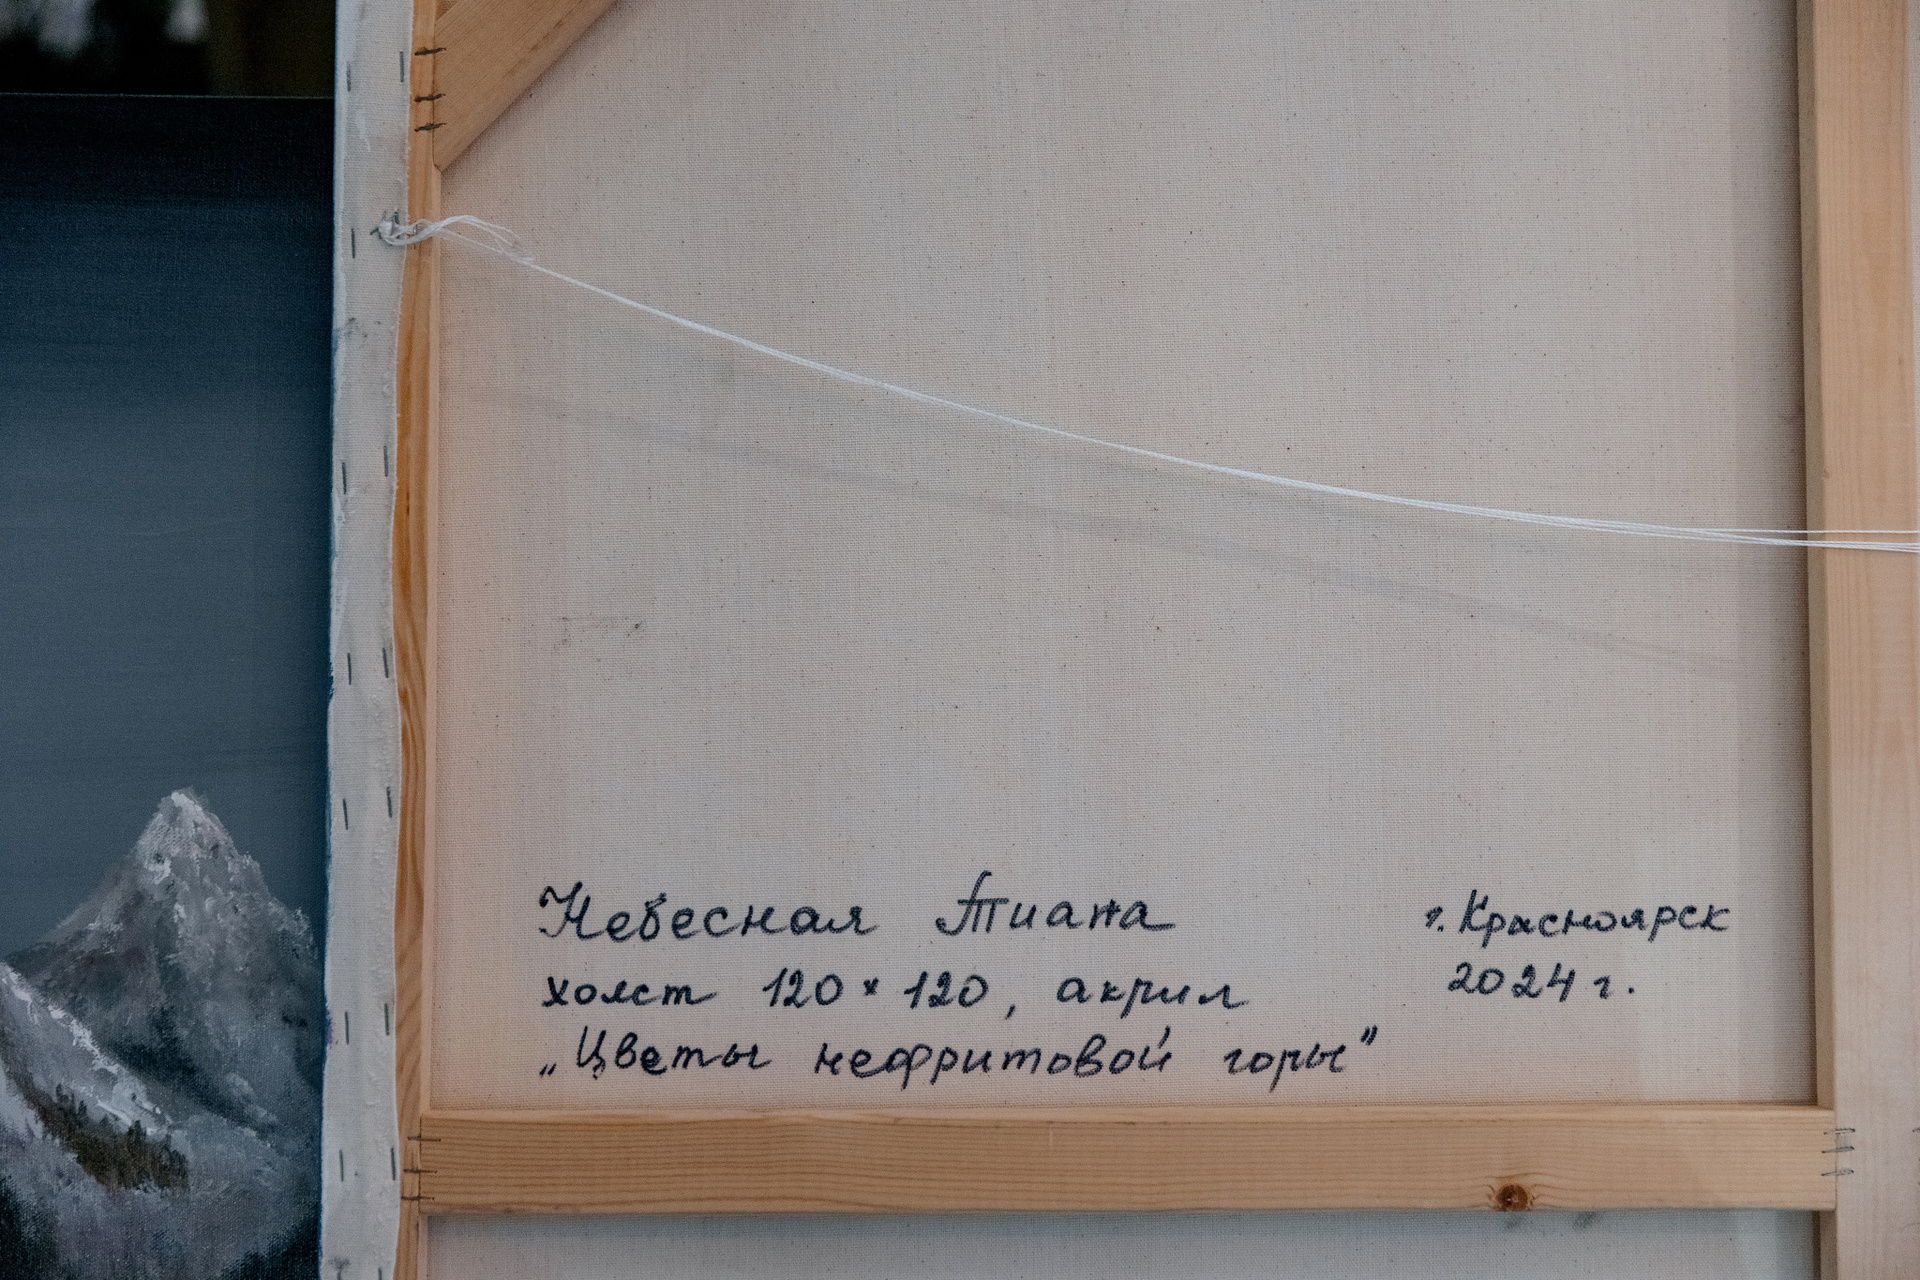 Небесная Тиана
холст 120 × 120, акрил
„Цветы нефритовой горы"
г. Красноярск
2024 г.